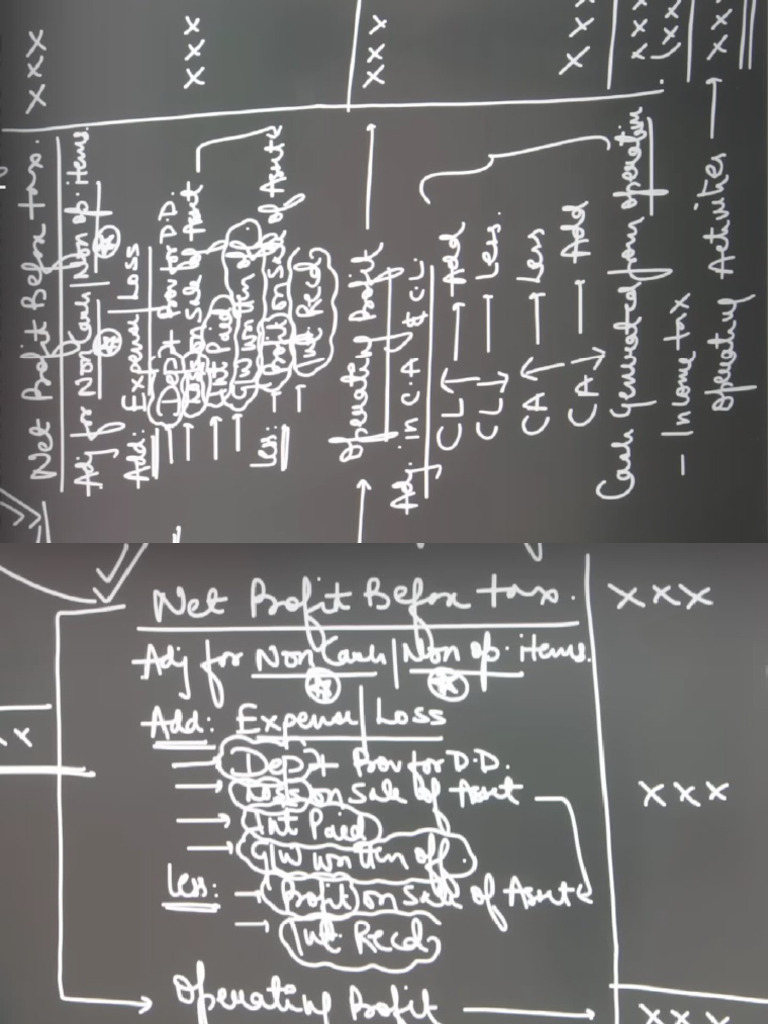 Net Profit Before tax. XXX
Adj for Non Cash | Non op. items.
Add: Expense | Loss
Dept Prov for D.D.
Loss on sale of Asset XXX
Int Paid
G/W written off.
Less: Profit on Sale of Assets
Int Recd
Operating Profit XXX
Adj. in C.A & C.L.
CL↑ → Add
CL↓ → Less.
CA↑ → Less XXX
CA↓ → Add
Cash Generated from operation XXX
- Income tax (XX
operating Activities XXX
Net Profit Before tax. XXX
Adj for Non Cash | Non op. items.
Add: Expense | Loss
Dept Prov for D.D.
Loss on sale of Asset XXX
Int Paid
G/W written off.
Less: Profit on Sale of Assets
Int Recd
Operating Profit XXX